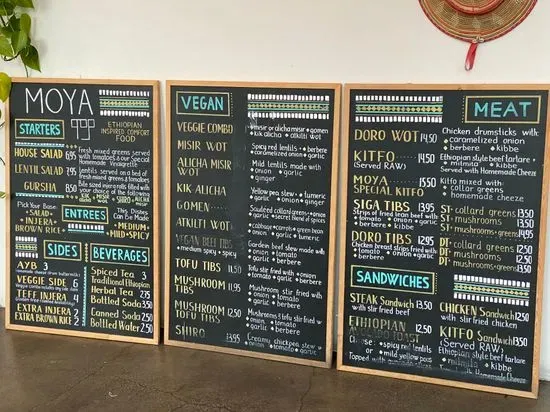 MOYA
ETHIOPIAN
INSPIRED COMFORT
FOOD
STARTERS
HOUSE SALAD 6.95
Fresh mixed greens served
with tomatoes & our Special
Homemade Vinaigrette
LENTIL SALAD 7.95
Lentils served on a bed of
fresh mixed greens & tomatoes
GURSHA 8.50
Bite sized injera rolls filled with
your choice of the following
Pick Your Base
SALAD
INJERA
BROWN RICE
ENTREES
This Dishes
Can be Made
MEDIUM
MILD SPICY
SIDES
AYB 3
VEGGIE SIDE 6
TEFF INJERA 4
EXTRA INJERA 2
EXTRA BROWN RICE 2
BEVERAGES
Spiced Tea 3
Traditional Ethiopian
Herbal Tea 2.75
Bottled Soda 3.50
Canned Soda 2.50
Bottled Water 2.50
VEGAN
VEGGIE COMBO
misir or alicha misir gomen
kik alicha atkilti wot
MISIR WOT
Spicy red lentils berbere
caramelized onion garlic
ALICHA MISIR
WOT
Mild lentils made with
onion garlic
onion ginger
KIK ALICHA
Yellow pea stew turmeric
onion garlic ginger
GOMEN
Sauteed collard greens onion
garlic secret blend of spices
ATKILTI WOT
cabbage carrots green bean
onion garlic tumeric
VEGAN BEEF TIBS
medium spicy spicy
Garden beef stew made with
onion tomato
berbere garlic
TOFU TIBS 11.50
Tofu stir fried with onion
tomato garlic
MUSHROOM
TIBS 11.50
Mushroom tibs stir fried with
onion berbere
tomato garlic
MUSHROOM
TOFU TIBS 12.50
Mushrooms & tofu stir fried w
onion berbere
tomato garlic
SHIRO 13.95
Creamy chickpea stew w
onion tomato garlic
MEAT
DORO WOT 14.50
Chicken drumsticks with:
caramelized onion
berbere kibbe
KITFO 15
(Served RAW)
Ethiopian style beef tartare
mitmita kibbe
Served with Homemade Cheeze
MOYA 15.50
SPECIAL KITFO
Kitfo mixed with
collar greens
homemade cheeze
SIGA TIBS 13.95
Strips of fried beef with
tomato onion garlic
berbere kibbe
ST collard greens 13.50
ST mushrooms 13.50
ST mushrooms+greens 14.95
DORO TIBS 12.95
Chicken breast strips fried with
tomato onion
garlic berbere
DT collard greens 13.50
DT mushrooms 13.50
DT mushrooms+greens 13.50
SANDWICHES
STEAK Sandwich 13.50
with stir fried beef
CHICKEN Sandwich 12.50
with stir fried chicken
ETHIOPIAN 12.50
TOAST
Choose: spicy red lentils
or mild yellow peas
Topped with avocado
KITFO Sandwich 13.50
(Served RAW)
Ethiopian style beef tartare
mitmita kibbe
with Homemade Cheeze